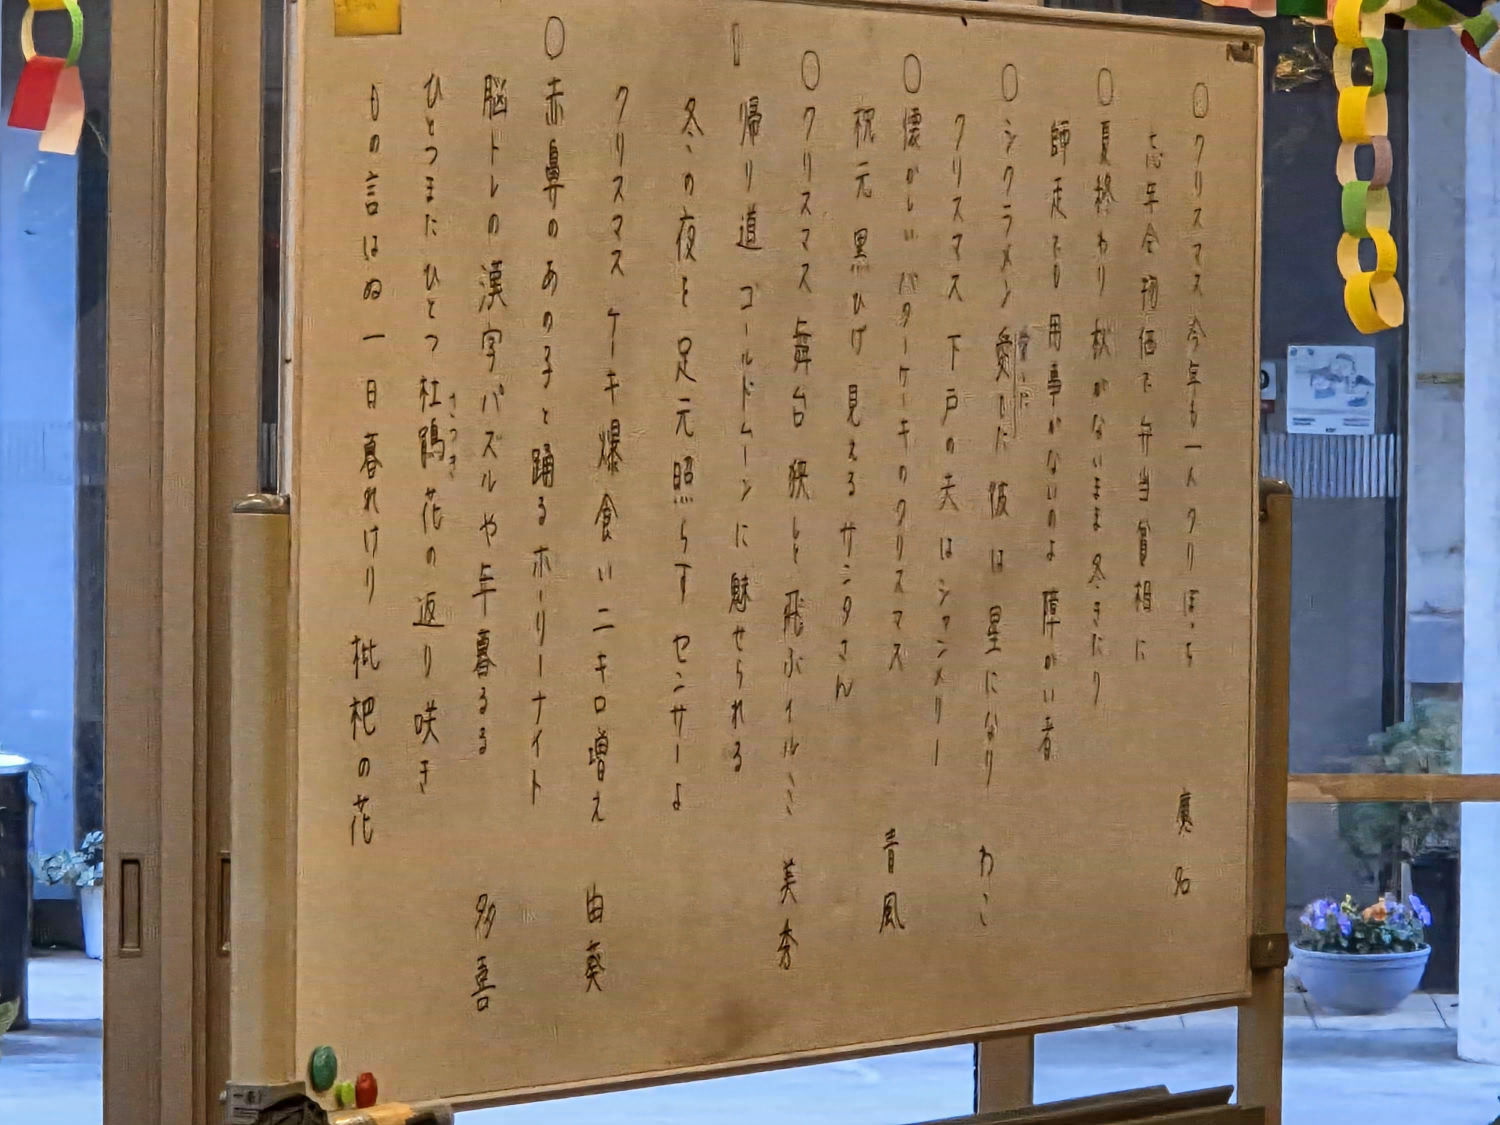 ○クリスマス 今年も一人 クリぼっち
忘年会 物価で弁当 貧相に
○夏終わり 秋がないまま 冬きたり
師走でも 用事がないのよ 障がい者
○シクラメン 愛した彼は 星になり わこ
クリスマス 下戸の夫は シャンメリー
○懐かしい バターケーキの クリスマス 青風
祝元 黒ひげ 見える サンタさん
○クリスマス 舞台狭しと 飛ぶイルミ 美秀
帰り道 ゴールドムーンに 魅せられる
冬の夜を 足元照らす センサーよ
クリスマス ケーキ爆食い 二キロ増え 由葵
○赤鼻の あの子と踊る ホーリーナイト
脳トレの 漢字パズルや 年暮るる 多喜
ひとつまたひとつ 杜鵑花の 返り咲き
さつき
もの言はぬ 一日暮れけり 枇杷の花